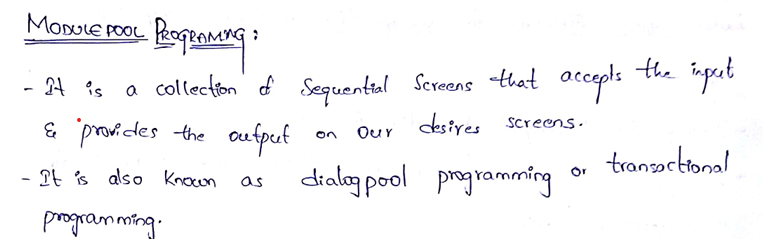 MODULEPOOL PROGRAMING:
- It is a collection of Sequential Screens that accepts the input
& provides the output on our desires screens.
- It is also known as dialogpool programming or transactional
programming.